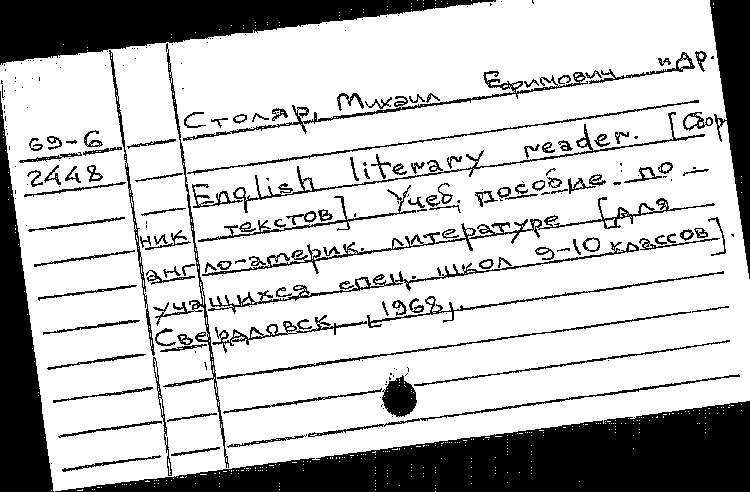 Столяр, Михаил Ефимович и др.
69-6
2448
English literary reader. [Сбор
ник текстов]. Учеб. пособие по
англо-америк. литературе [для
учащихся спец. школ 9-10 классов].
Свердловск, [1968].